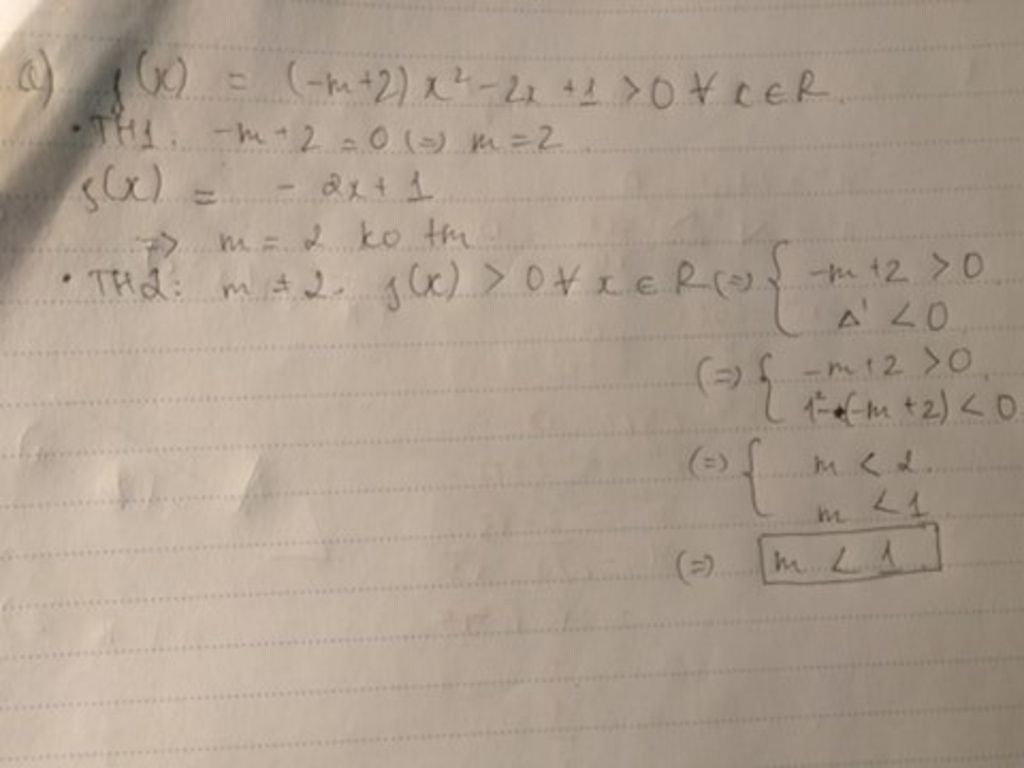 a) f(x) = (-m+2) x² - 2x + 1 > 0 ∀ x ∈ R.
• TH1: -m + 2 = 0 (=) m = 2.
f(x) = - 2x + 1
=> m = 2 ko tm
• TH2: m ≠ 2. f(x) > 0 ∀ x ∈ R (=) { -m + 2 > 0
Δ' < 0
(=) { -m + 2 > 0
1² - (-m + 2) < 0
(=) { m < 2.
m < 1
(=) m < 1